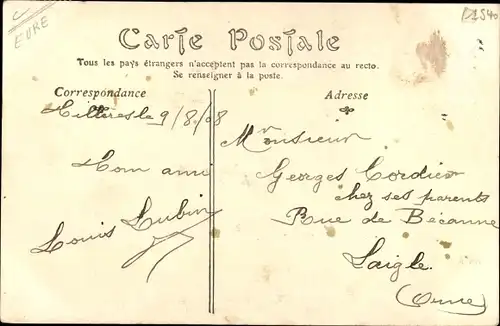 EURE
Carte Postale
Tous les pays étrangers n'acceptent pas la correspondance au recto.
Se renseigner à la poste.
Correspondance
Adresse
le 9/8/08
Mon ami
Louis Lubin
Monsieur
Georges Cordier
chez ses parents
Rue de Bécanne
Laigle.
(Orne)